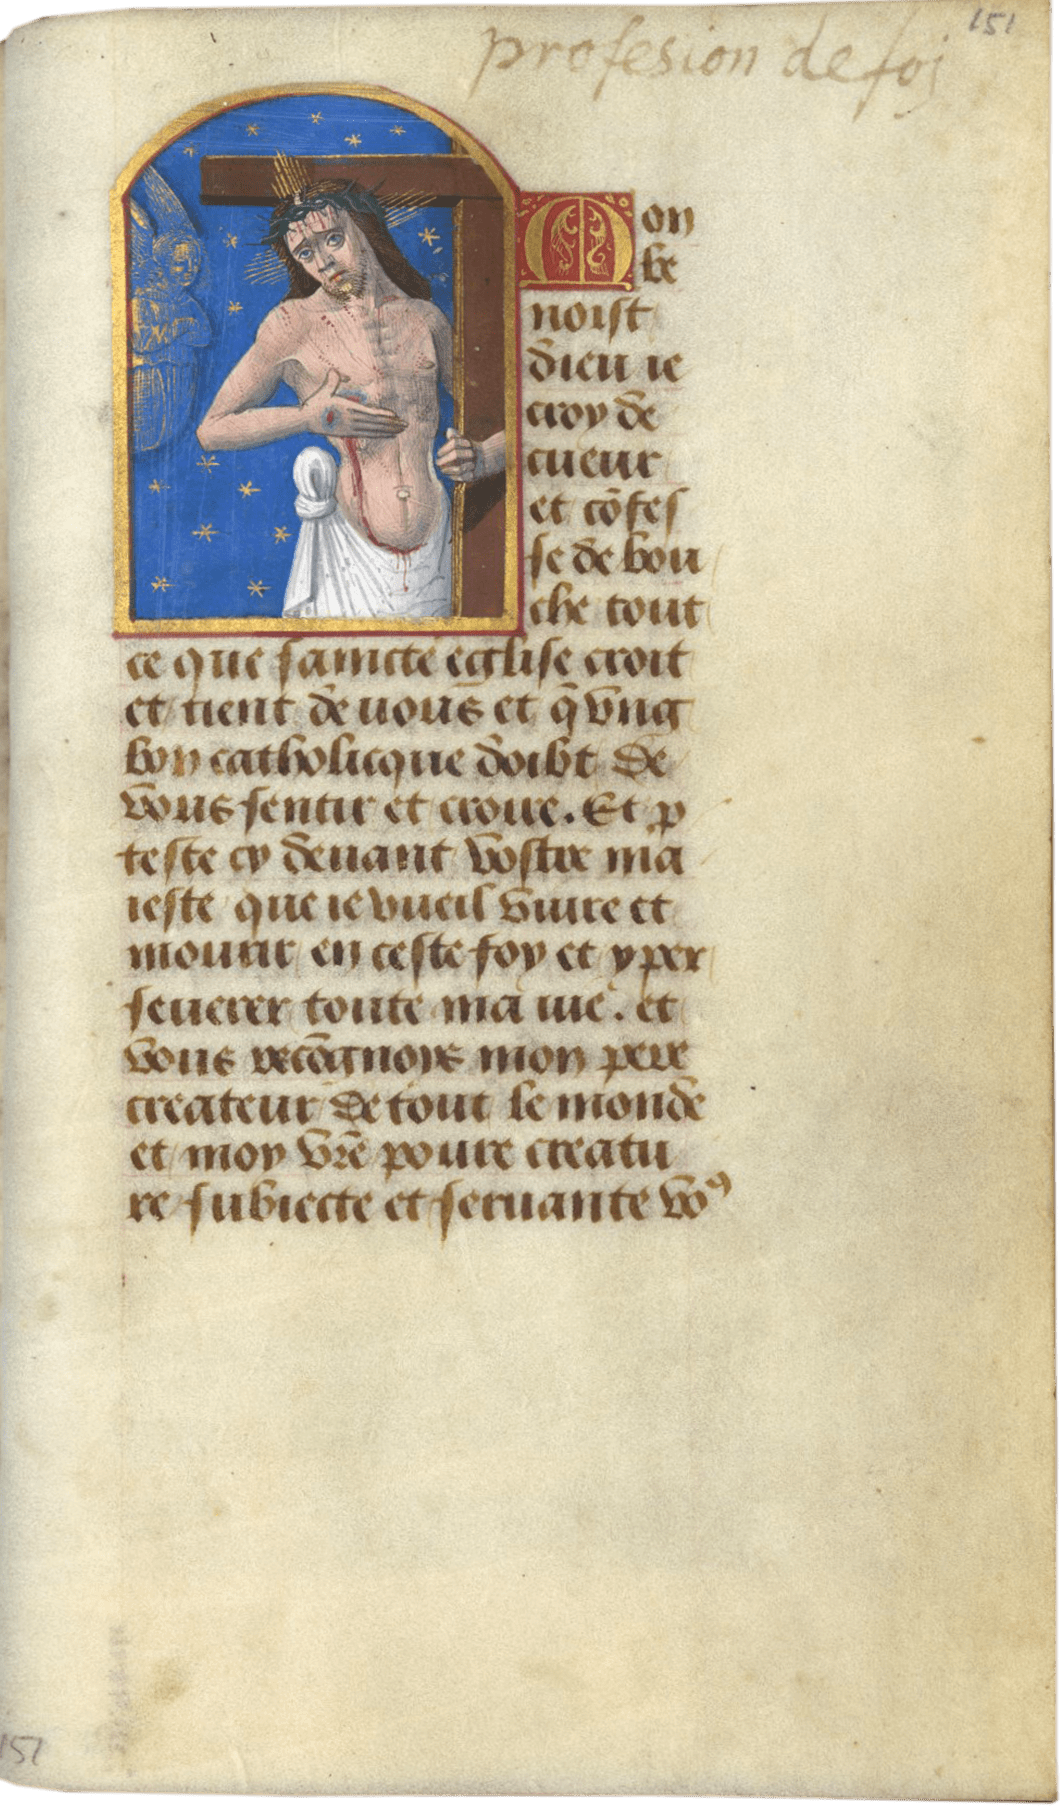 151
profesion de foj
Mon
be
noist
dieu ie
croy de
cueur
et cõfes
se de bou
che tout
ce que saincte eglise croit
et tient de uous et q̃ vng
bon catholicque doibt de
vous sentir et croire. Et p
teste cy deuant vostre ma
ieste que ie vueil viure et
mourir en ceste foy et y per
seuerer toute ma uie. et
vous recõgnois mon pere
createur de tout le monde
et moy vr̃e poure creatu
re subiecte et seruante voꝰ
151